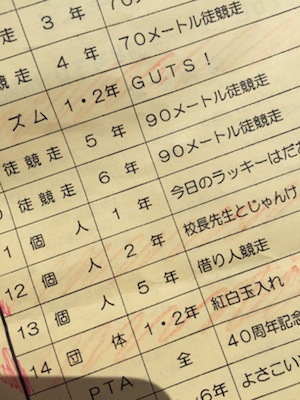 ３年 70メートル徒競走
競走 ４年 70メートル徒競走
ズム 1・2年 GUTS！
徒競走 ５年 90メートル徒競走
徒競走 ６年 90メートル徒競走
1 個人 １年 今日のラッキーはだ
12 個人 ２年 校長先生とじゃんけ
13 個人 ５年 借り人競走
14 団体 1・2年 紅白玉入れ
PTA 全 40周年記念
6年 よさこい